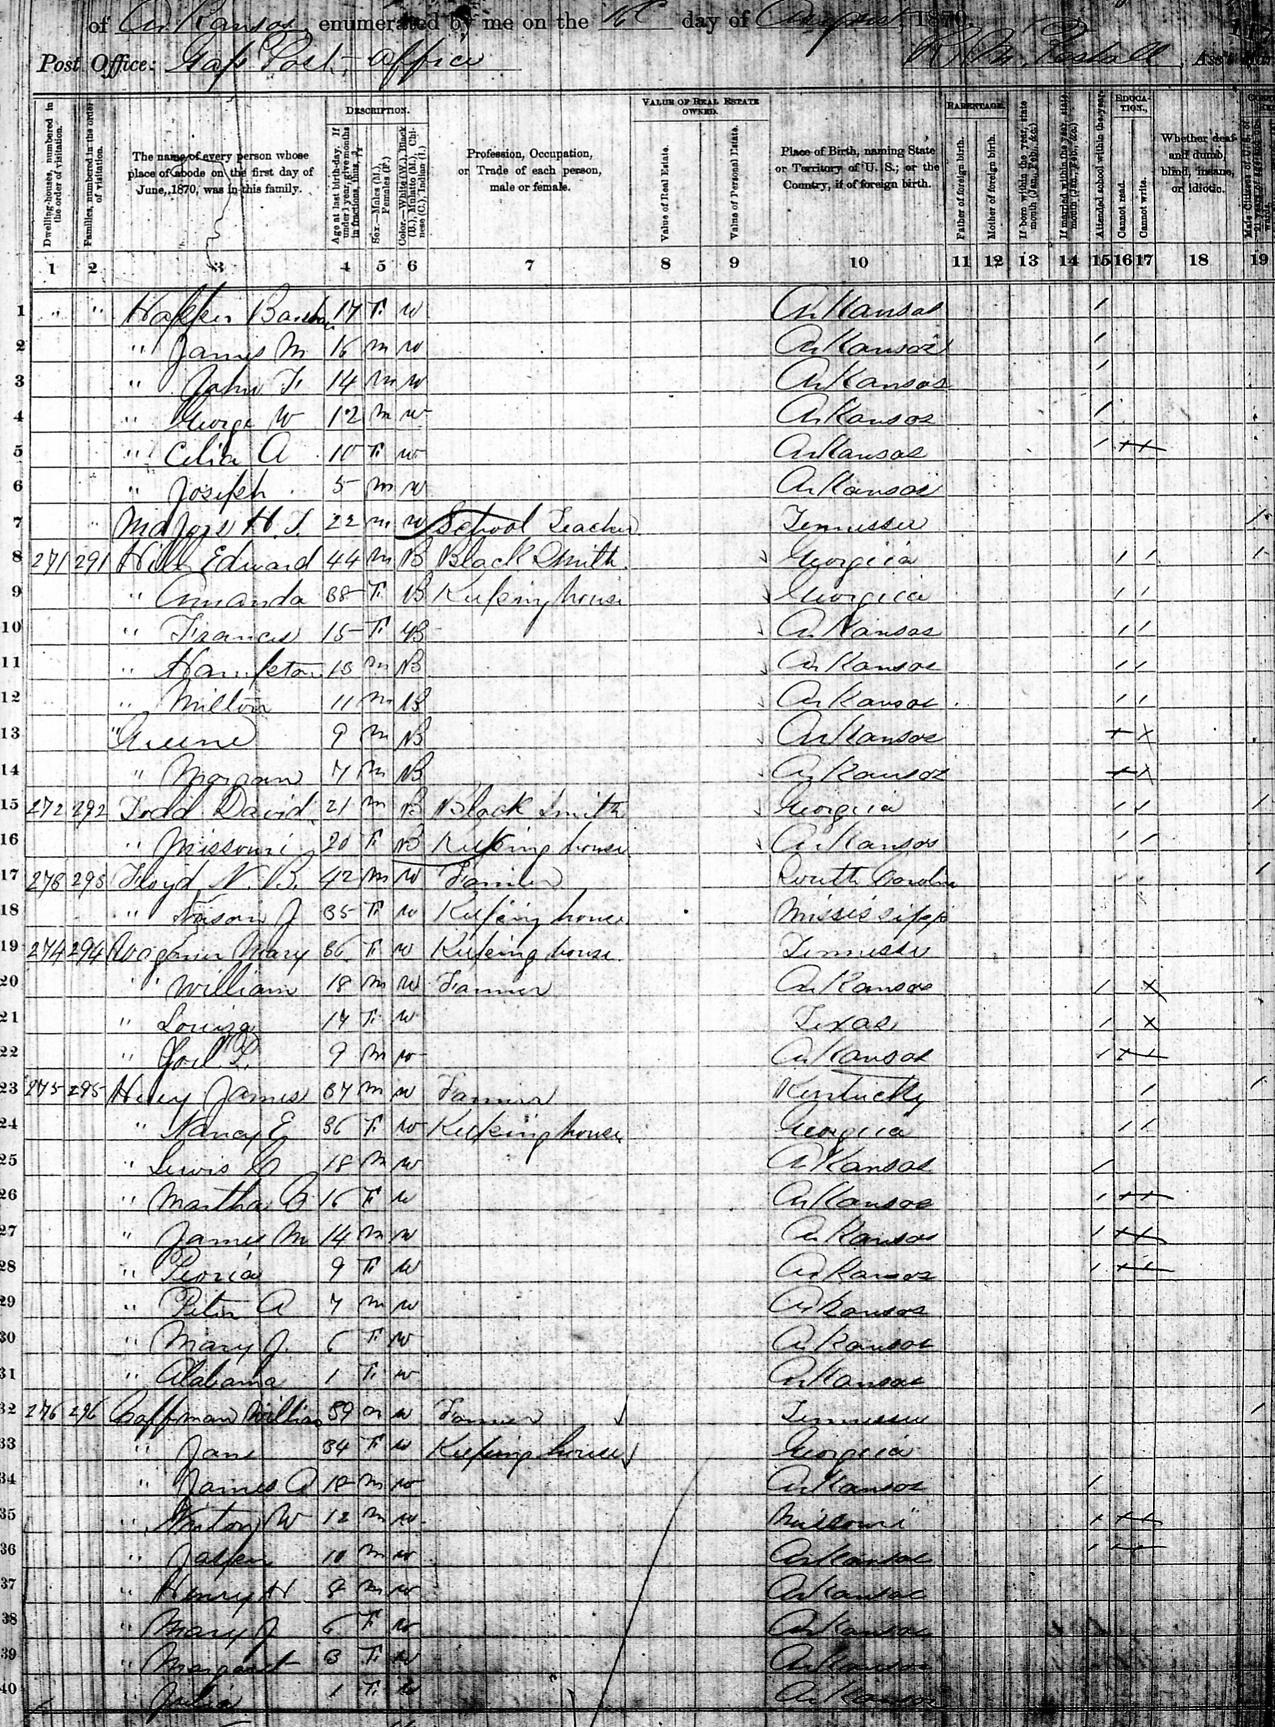 of Arkansas enumerated by me on the day of August 1870.
Post Office: Gap Post-office
DESCRIPTION. VALUE OF REAL ESTATE OWNED. PARENTAGE. EDUCATION.
Dwelling-houses, numbered in the order of visitation. Families, numbered in the order of visitation. The name of every person whose place of abode on the first day of June, 1870, was in this family. Age at last birth-day. If under 1 year, give months in fractions, thus, Sex.—Males (M.), Females (F.) Color.—White (W.), Black (B.), Mulatto (M.), Chinese (C.), Indian (I.) Profession, Occupation, or Trade of each person, male or female. Value of Real Estate. Value of Personal Estate. Place of Birth, naming State or Territory of U. S.; or the Country, if of foreign birth. Father of foreign birth. Mother of foreign birth. If born within the year, state month (Jan., Feb., &c.) If married within the year, state month (Jan., Feb., &c.) Attended school within the year. Cannot read. Cannot write. Whether deaf and dumb, blind, insane, or idiotic.
1 2 3 4 5 6 7 8 9 10 11 12 13 14 15 16 17 18 19
1 " " 17 F W Arkansas /
2 " James M 16 M W Arkansas /
3 " John F. 14 M W Arkansas /
4 " George W 12 M W Arkansas /
5 " Celia A 10 F W Arkansas /
6 " Joseph 5 M W Arkansas
7 " Majors H. T. 22 M W School Teacher Tennessee /
8 271 291 Hill Edward 44 M B Black Smith Georgiia / / /
9 " Amanda 38 F B Keeping house Georgiia / /
10 " Frances 15 F B Arkansas / /
11 " Hampton 13 M B Arkansas / /
12 " Milton 11 M B Arkansas / /
13 " Greene 9 M B Arkansas + x
14 " Morgan 7 M B Arkansas + x
15 272 292 Todd David 21 M B Black Smith Georgiia / / /
16 " Missouri 20 F B Keeping house Arkansas / /
17 273 293 Floyd N. B. 42 M W Farmer South Carolina /
18 " J 35 F W Keeping house Mississippi
19 274 294 Mary 36 F W Keeping house Tennessee
20 " William 18 M W Farmer Arkansas / x
21 " Louiza 14 F W Texas / x
22 " Joel 9 M W Arkansas /
23 275 295 James 37 M W Farmer Kentucky / /
24 " Nancy E 36 F W Keeping house Georgiia / /
25 " Lewis C 18 M W Arkansas /
26 " Martha B 16 F W Arkansas /
27 " James M 14 M W Arkansas /
28 " Peoria 9 F W Arkansas /
29 " Peter A 7 M W Arkansas
30 " Mary J. 6 F W Arkansas
31 " Alabama 1 F W Arkansas
32 276 296 Caffman William 39 M W Farmer Tennessee /
33 " Jane 34 F W Keeping house Georgiia
34 " James A M W Arkansas /
35 " W 12 M W Missouri
36 " 10 M W Arkansas
37 " Henry H 8 M W Arkansas
38 " Mary J 6 F W Arkansas
39 " Margaret 3 F W Arkansas
40 " Julia 1 F W Arkansas